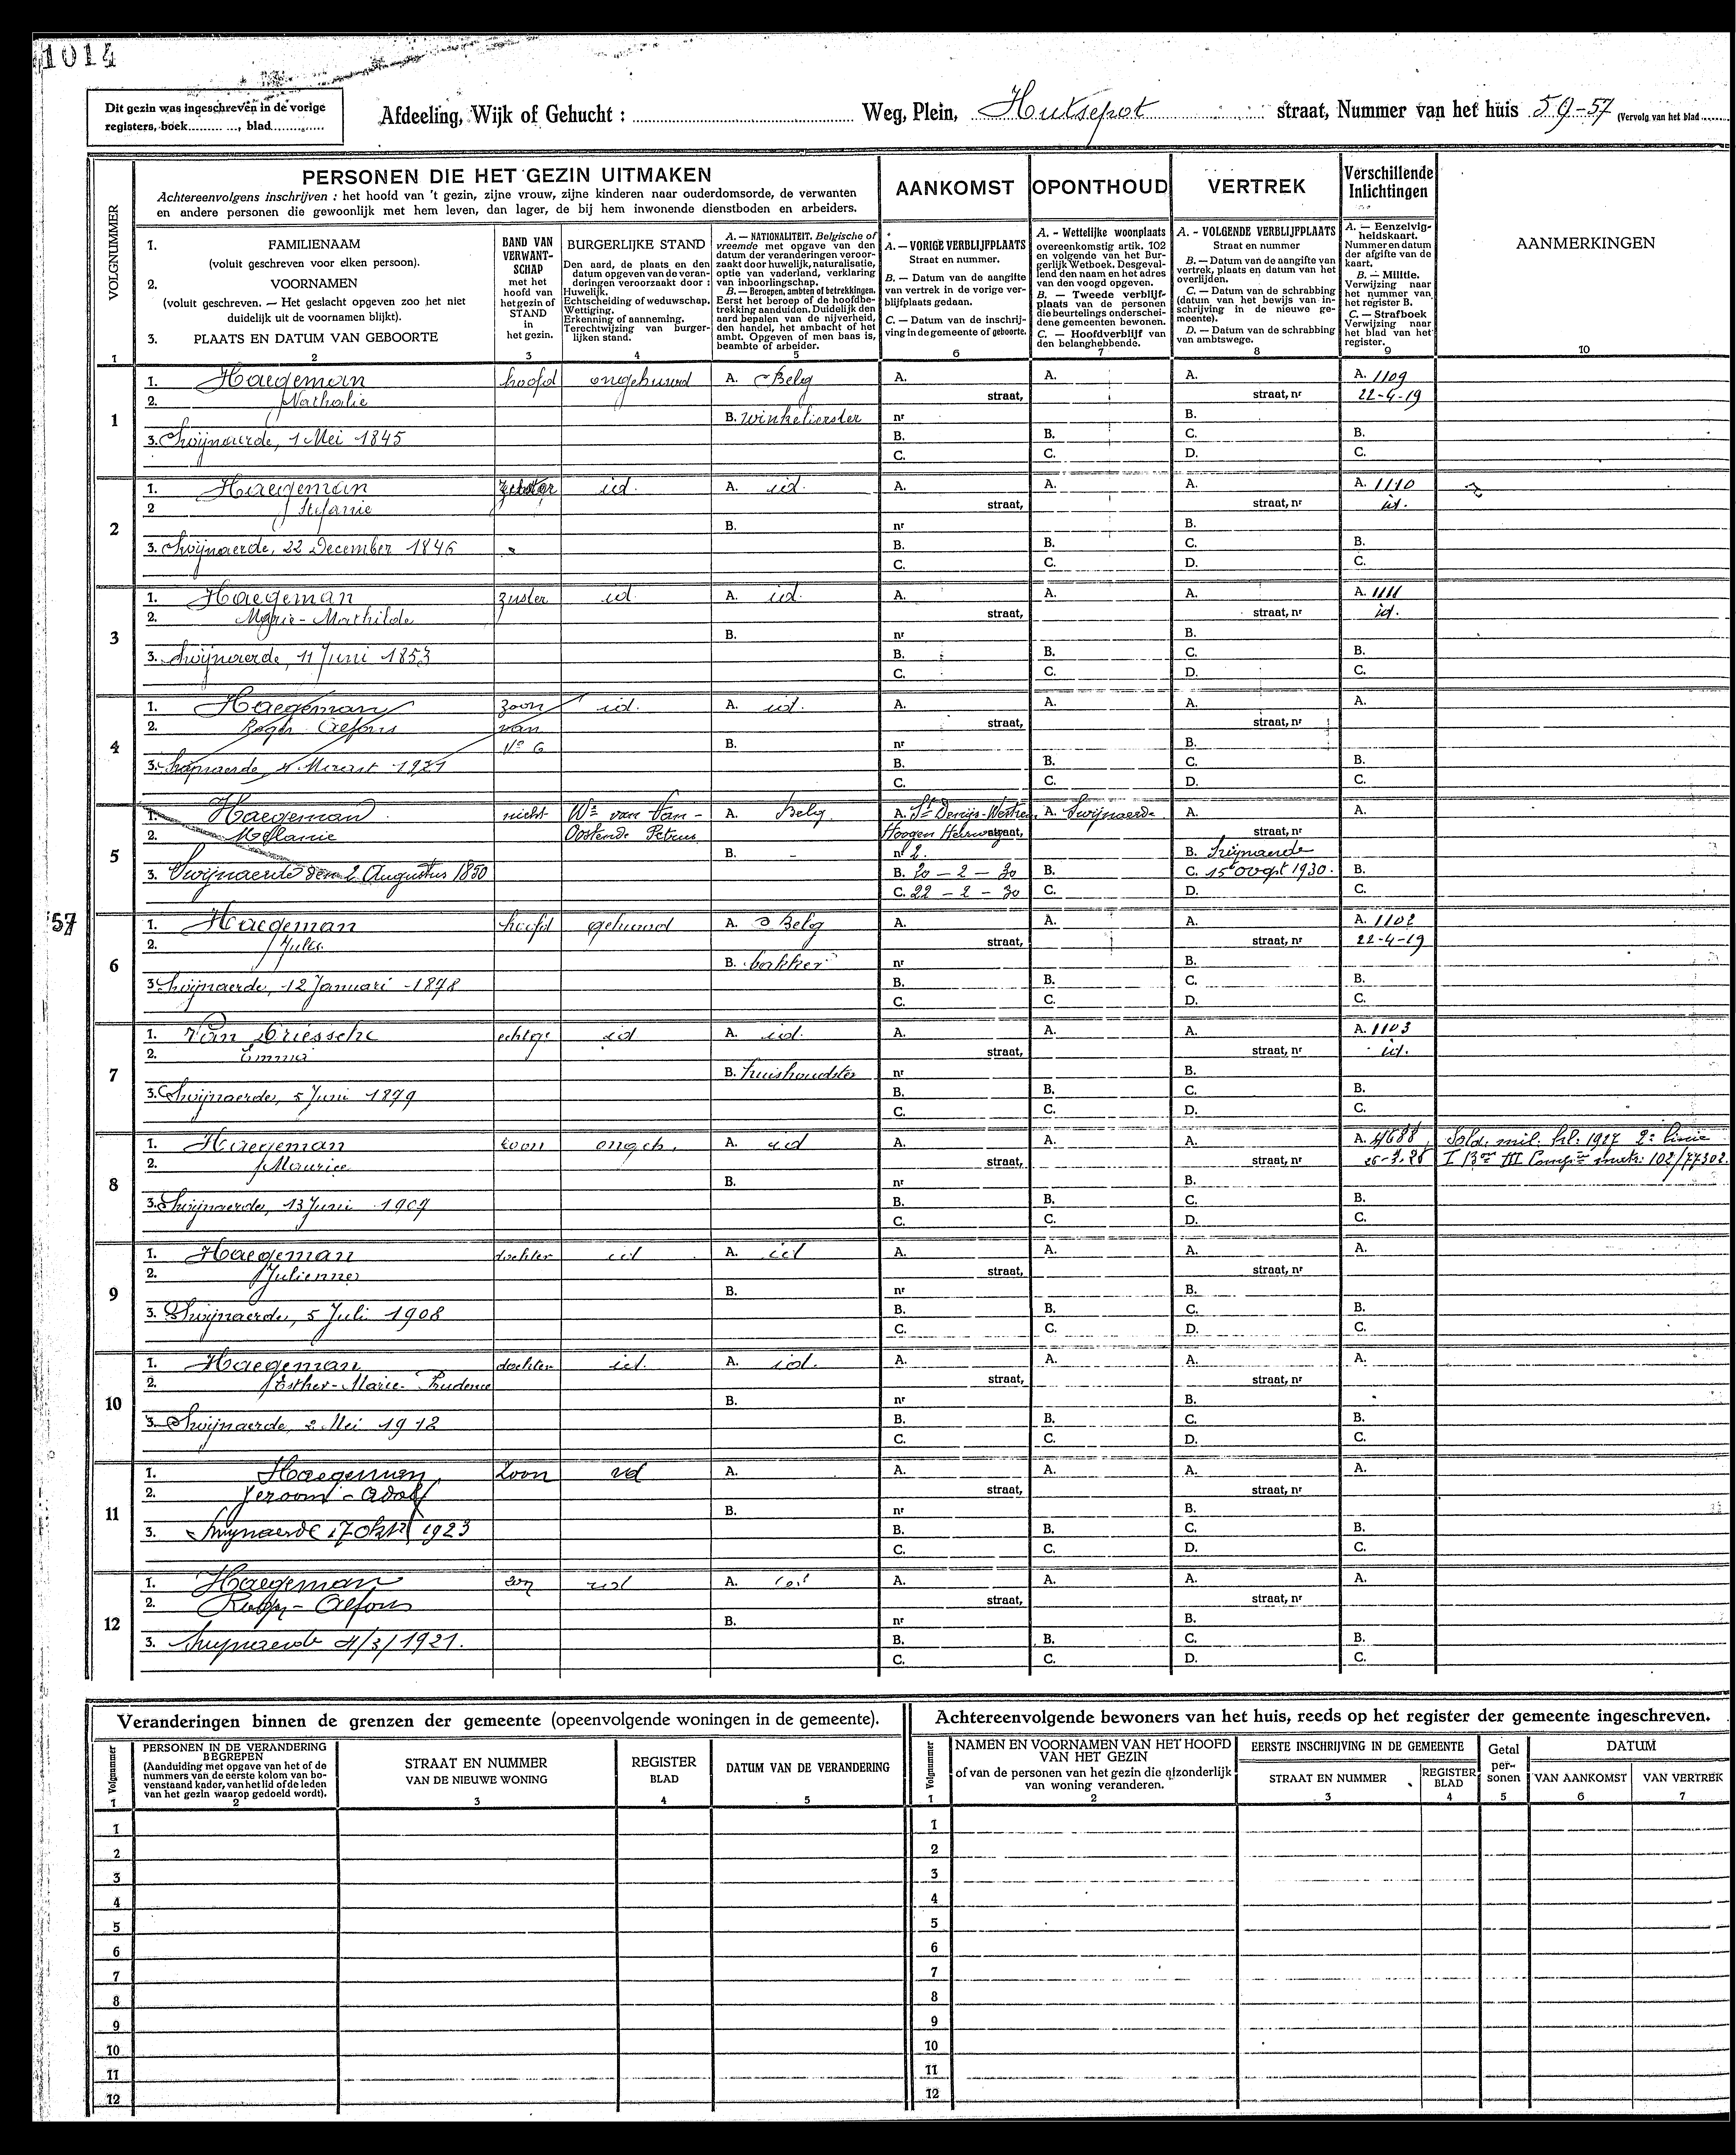 1014
Dit gezin was ingeschreven in de vorige
registers, boek........ ..., blad.............
Afdeeling, Wijk of Gehucht : ........ Weg, Plein, Hutsepot straat, Nummer van het huis 59-57 (Vervolg van het blad ........
PERSONEN DIE HET GEZIN UITMAKEN
Achtereenvolgens inschrijven : het hoofd van 't gezin, zijne vrouw, zijne kinderen naar ouderdomsorde, de verwanten
en andere personen die gewoonlijk met hem leven, dan lager, de bij hem inwonende dienstboden en arbeiders.
AANKOMST
OPONTHOUD
VERTREK
Verschillende
Inlichtingen
VOLGNUMMER
1
1. FAMILIENAAM
(voluit geschreven voor elken persoon).
2. VOORNAMEN
(voluit geschreven. — Het geslacht opgeven zoo het niet
duidelijk uit de voornamen blijkt).
3. PLAATS EN DATUM VAN GEBOORTE
2
BAND VAN
VERWANT-
SCHAP
met het
hoofd van
het gezin of
STAND
in
het gezin.
3
BURGERLIJKE STAND
Den aard, de plaats en den
datum opgeven van de veran-
deringen veroorzaakt door :
Huwelijk.
Echtscheiding of weduwschap.
Wettiging.
Erkenning of aanneming.
Terechtwijzing van burger-
lijken stand.
4
A. — NATIONALITEIT. Belgische of
vreemde met opgave van den
datum der veranderingen veroor-
zaakt door huwelijk, naturalisatie,
optie van vaderland, verklaring
van inboorlingschap.
B. — Beroepen, ambten of betrekkingen.
Eerst het beroep of de hoofdbe-
trekking aanduiden. Duidelijk den
aard bepalen van de nijverheid,
den handel, het ambacht of het
ambt. Opgeven of men baas is,
beambte of arbeider.
5
A. — VORIGE VERBLIJFPLAATS
Straat en nummer.
B. — Datum van de aangifte
van vertrek in de vorige ver-
blijfplaats gedaan.
C. — Datum van de inschrij-
ving in de gemeente of geboorte.
6
A. - Wettelijke woonplaats
overeenkomstig artik. 102
en volgende van het Bur-
gerlijk Wetboek. Desgeval-
lend den naam en het adres
van den voogd opgeven.
B. — Tweede verblijf-
plaats van de personen
die beurtelings onderschei-
dene gemeenten bewonen.
C. — Hoofdverblijf van
den belanghebbende.
7
A. - VOLGENDE VERBLIJFPLAATS
Straat en nummer
B. — Datum van de aangifte van
vertrek, plaats en datum van het
overlijden.
C. — Datum van de schrabbing
(datum van het bewijs van in-
schrijving in de nieuwe ge-
meente).
D. — Datum van de schrabbing
van ambtswege.
8
A. — Eenzelvig-
heidskaart.
Nummer en datum
der afgifte van de
kaart.
B. — Militie.
Verwijzing naar
het nummer van
het register B.
C. — Strafboek
Verwijzing naar
het blad van het
register.
9
AANMERKINGEN
10
1
1. Haegeman hoofd ongehuwd A. Belg A. A. A. A. 1109
2. Nathalie straat, straat, nr 22-4-19
B. winkelierster nr B.
3. Swijnaerde, 1 Mei 1845 B. B. C. B.
C. C. D. C.
2
1. Haegeman zuster id. A. id. A. A. A. A. 1110
2 Stefanie straat, straat, nr id.
B. nr B.
3. Swijnaerde, 22 December 1846 B. B. C. B.
C. C. D. C.
3
1. Haegeman zuster id. A. id. A. A. A. A. 1111
2. Marie-Mathilde straat, straat, nr id.
B. nr B.
3. Swijnaerde, 11 Juni 1853 B. B. C. B.
C. C. D. C.
4
1. Haegeman zoon id. A. id. A. A. A. A.
2. Roger Alfons van straat, straat, nr
No 6 B. nr B.
3. Swijnaerde, 4 Maart 1921 B. B. C. B.
C. C. D. C.
5
1. Haegeman nicht We van Van- A. belg A. St Denijs-Westrem A. Swijnaerde A. A.
2. Melanie Oostende Petrus Hoogen Heirweg straat, straat, nr
B. - nr 2. B. Swijnaerde
3. Swijnaerde den 2 Augustus 1850 B. 20 - 2 - 30 B. C. 15 oogst 1930. B.
C. 22 - 2 - 30 C. D. C.
57
6
1. Haegeman hoofd gehuwd A. Belg A. A. A. A. 1102
2. Jules straat, straat, nr 22-4-19
B. bakker nr B.
3. Swijnaerde, 12 Januari 1878 B. B. C. B.
C. C. D. C.
7
1. Van Driessche echtge id A. id. A. A. A. A. 1103
2. Emma straat, straat, nr id.
B. huishoudster nr B.
3. Swijnaerde, 5 Juni 1879 B. B. C. B.
C. C. D. C.
8
1. Haegeman zoon ongeh. A. id A. A. A. A. 4688 Sold. mil. kl. 1927 2e linie
2. Maurice straat, straat, nr I Bon III Compie 102/77302.
B. nr B.
3. Swijnaerde, 13 Juni 1907 B. B. C. B.
C. C. D. C.
9
1. Haegeman dochter id A. id A. A. A. A.
2. Julienne straat, straat, nr
B. nr B.
3. Swijnaerde, 5 Juli 1908 B. B. C. B.
C. C. D. C.
10
1. Haegeman dochter id. A. id. A. A. A. A.
2. Esther-Marie-Prudence straat, straat, nr
B. nr B.
3. Swijnaerde, 2 Mei 1912 B. B. C. B.
C. C. D. C.
11
1. Haegeman zoon id A. A. A. A. A.
2. Jeroom - Adolf straat, straat, nr
B. nr B.
3. Swynaerde 17 okt 1923 B. B. C. B.
C. C. D. C.
12
1. Haegeman zoon id A. id A. A. A. A.
2. Roger - Alfons straat, straat, nr
B. nr B.
3. Swynaerde 4/3/1921. B. B. C. B.
C. C. D. C.
Veranderingen binnen de grenzen der gemeente (opeenvolgende woningen in de gemeente).
Volgnummer
1
PERSONEN IN DE VERANDERING
BEGREPEN
(Aanduiding met opgave van het of de
nummers van de eerste kolom van bo-
venstaand kader, van het lid of de leden
van het gezin waarop gedoeld wordt).
2
STRAAT EN NUMMER
VAN DE NIEUWE WONING
3
REGISTER
BLAD
4
DATUM VAN DE VERANDERING
5
1
2
3
4
5
6
7
8
9
10
11
12
Achtereenvolgende bewoners van het huis, reeds op het register der gemeente ingeschreven.
Volgnummer
1
NAMEN EN VOORNAMEN VAN HET HOOFD
VAN HET GEZIN
of van de personen van het gezin die afzonderlijk
van woning veranderen.
2
EERSTE INSCHRIJVING IN DE GEMEENTE
STRAAT EN NUMMER
3
REGISTER
BLAD
4
Getal
per-
sonen
5
DATUM
VAN AANKOMST
6
VAN VERTREK
7
1
2
3
4
5
6
7
8
9
10
11
12